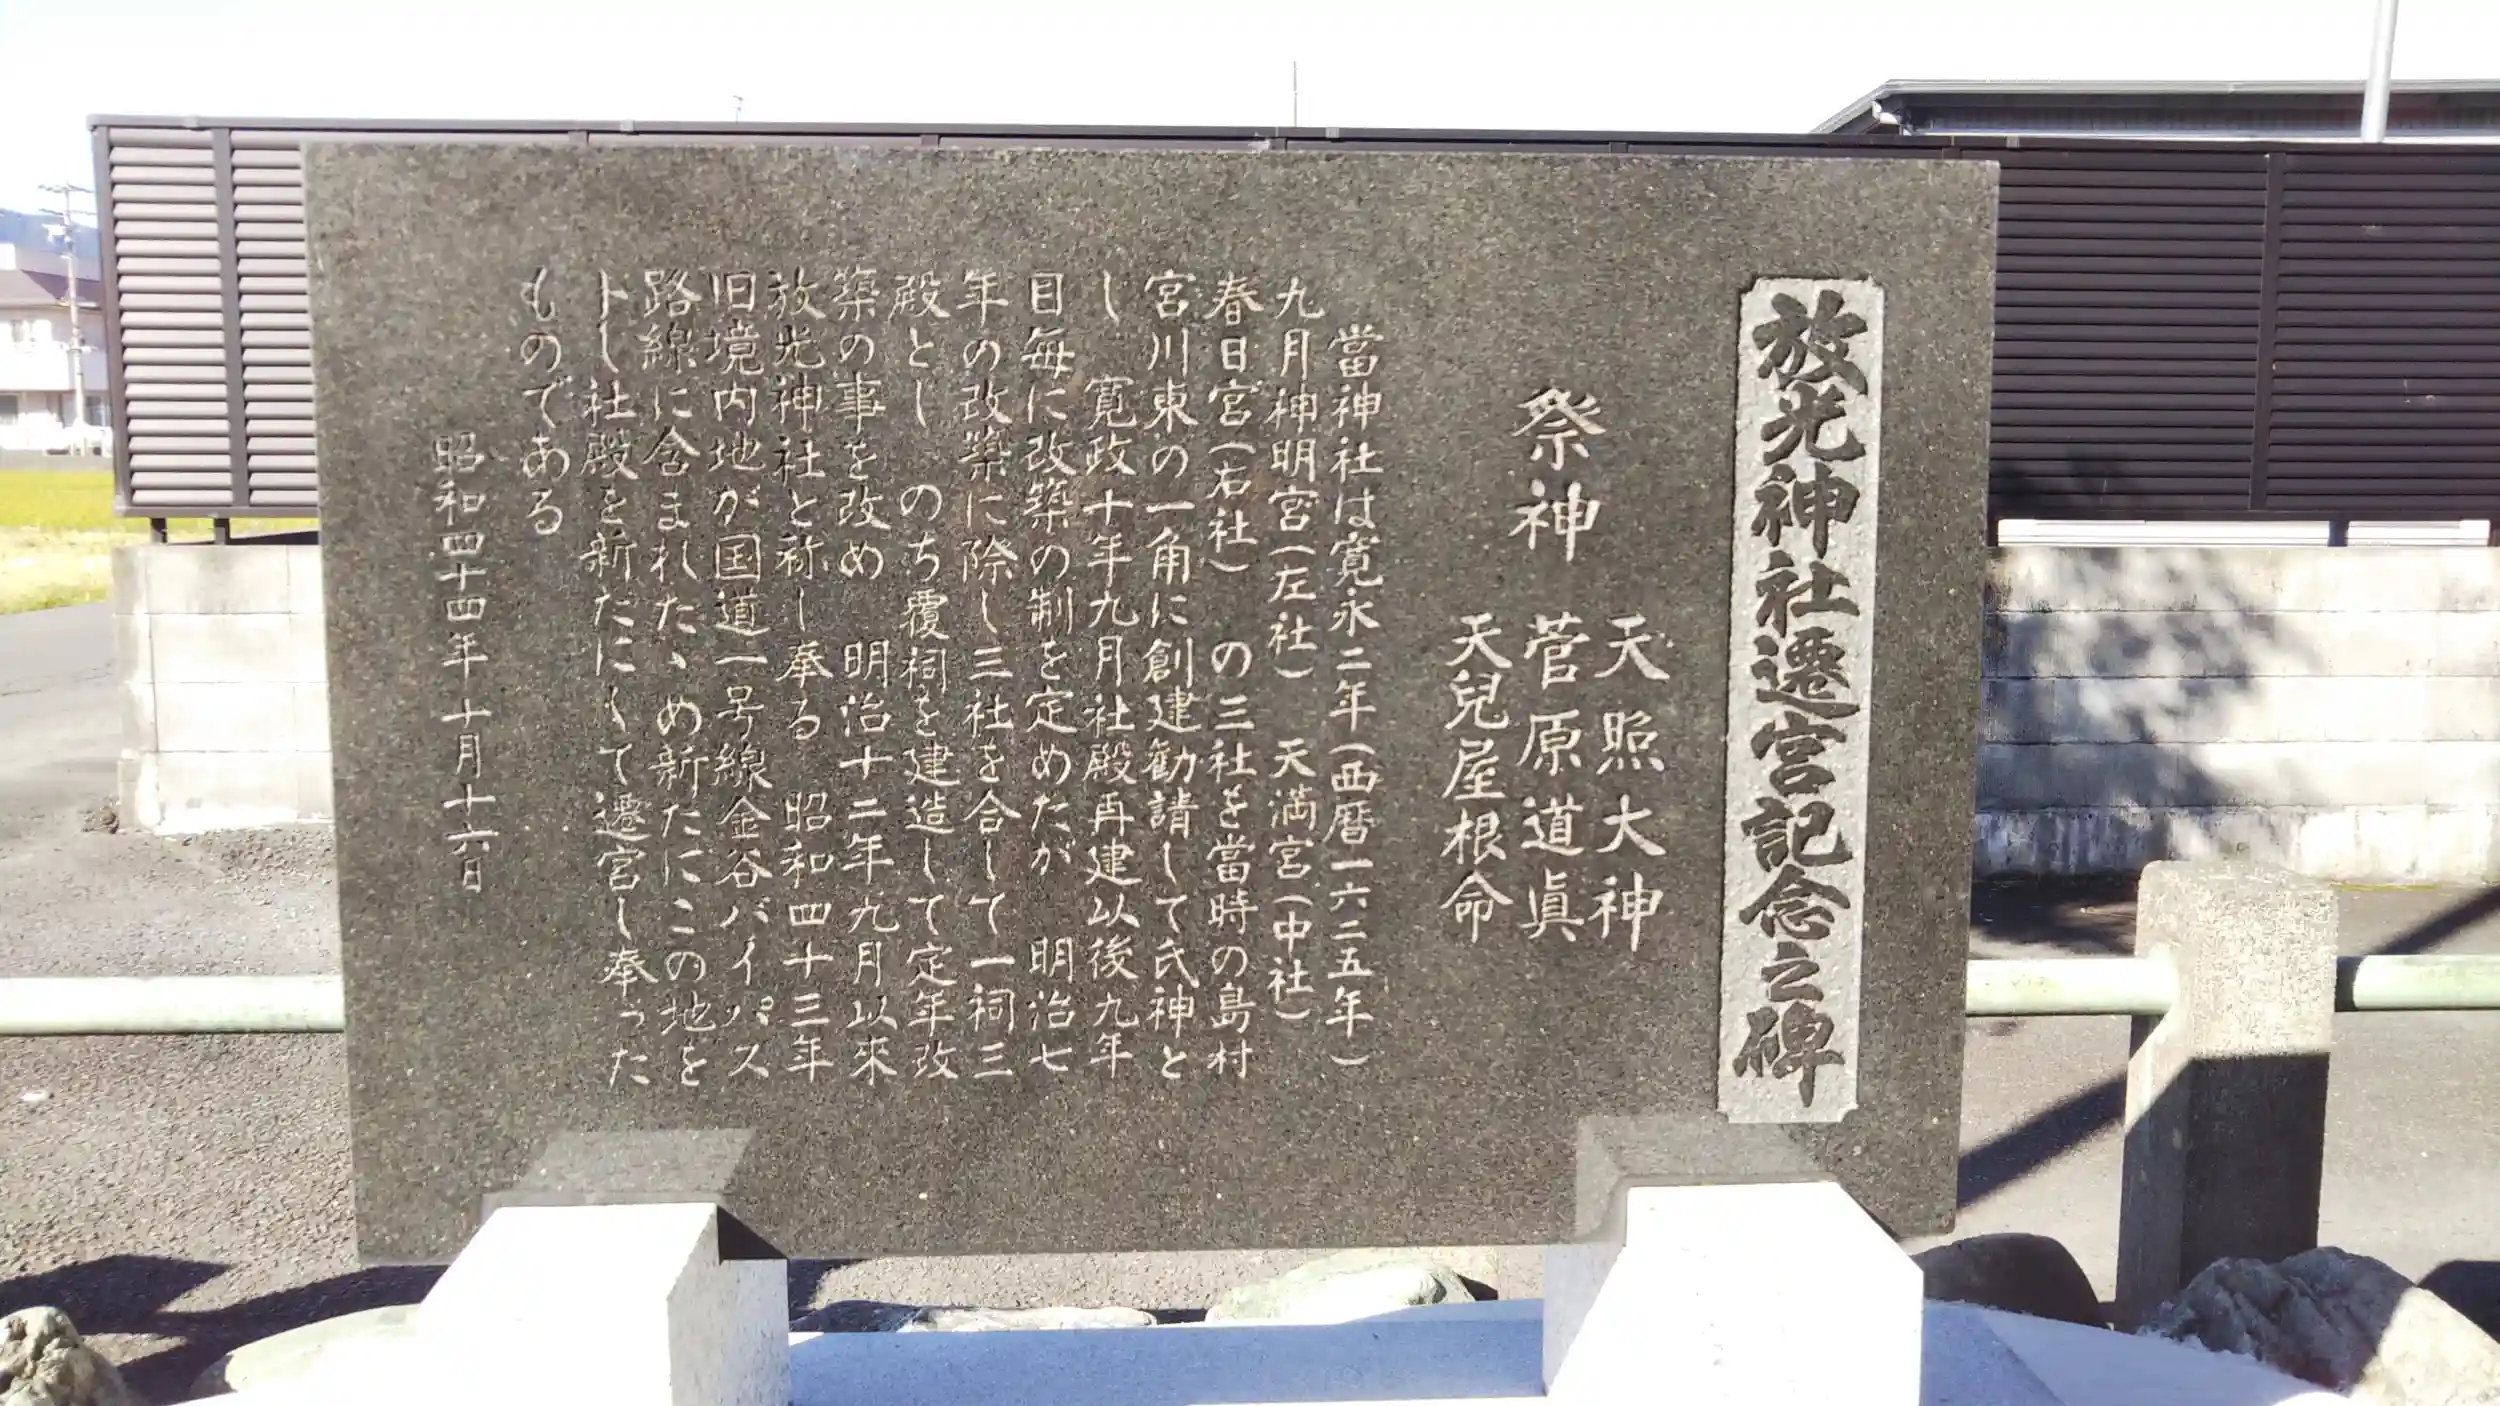 放光神社遷宮記念之碑
祭神
天照大神
菅原道眞
天兒屋根命
當神社は寛永二年(西暦一六二五年)
九月神明宮(左社) 天満宮(中社)
春日宮(右社) の三社を當時の島村
宮川東の一角に創建勧請して氏神と
し 寛政十年九月社殿再建以後九年
目毎に改築の制を定めたが 明治七
年の改築に除し三社を合して一祠三
殿とし のち覆祠を建造して定年改
築の事を改め 明治十二年九月以來
放光神社と称し奉る 昭和四十三年
旧境内地が国道一号線金谷バイパス
路線に含まれたゝめ新たにこの地を
卜し社殿を新たにして遷宮し奉った
ものである
昭和四十四年十月十六日